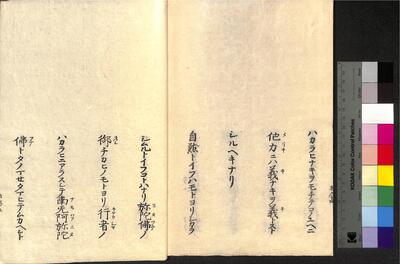 ハカラヒナキヲモチテコノユヘニ
他力ニハ義ナキヲ義トスト
シルヘキナリ
自然トイフハモトヨリシカラ
シムルトイフコトハナリ彌陀佛ノ
御チカヒノモトヨリ行者ノ
ハカラヒニアラスシテ南无阿彌陀
佛トタノマセタマヒテムカヘムト
KODAK Color Control Patches